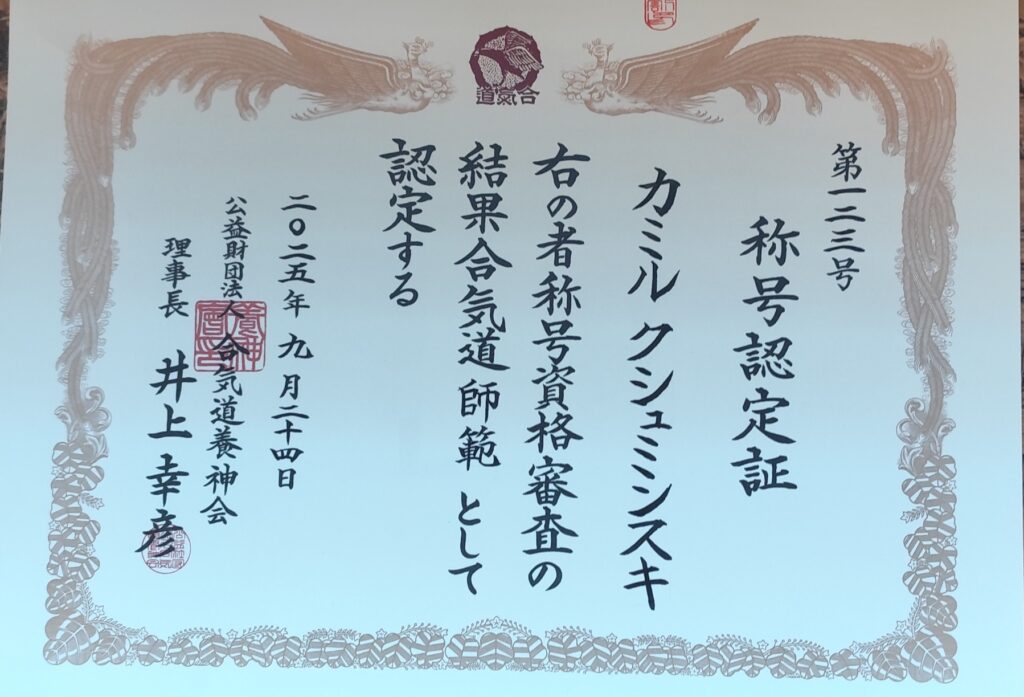 合気道
第一二三号
称号認定証
カミル クシュミンスキ
右の者称号資格審査の
結果合気道師範として
認定する
二〇二五年九月二十四日
公益財団法人合気道養神会
理事長 井上幸彦